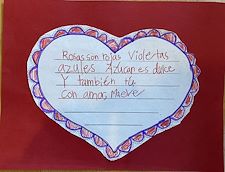 Rosas son rojas Violetas
azules Azucar es dulce
Y también tú
Con amor, Maeve